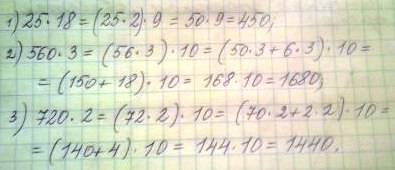 1) 25·18 = (25·2)·9 = 50·9 = 450;
2) 560·3 = (56·3)·10 = (50·3+6·3)·10 =
= (150+18)·10 = 168·10 = 1680;
3) 720·2 = (72·2)·10 = (70·2+2·2)·10 =
= (140+4)·10 = 144·10 = 1440.